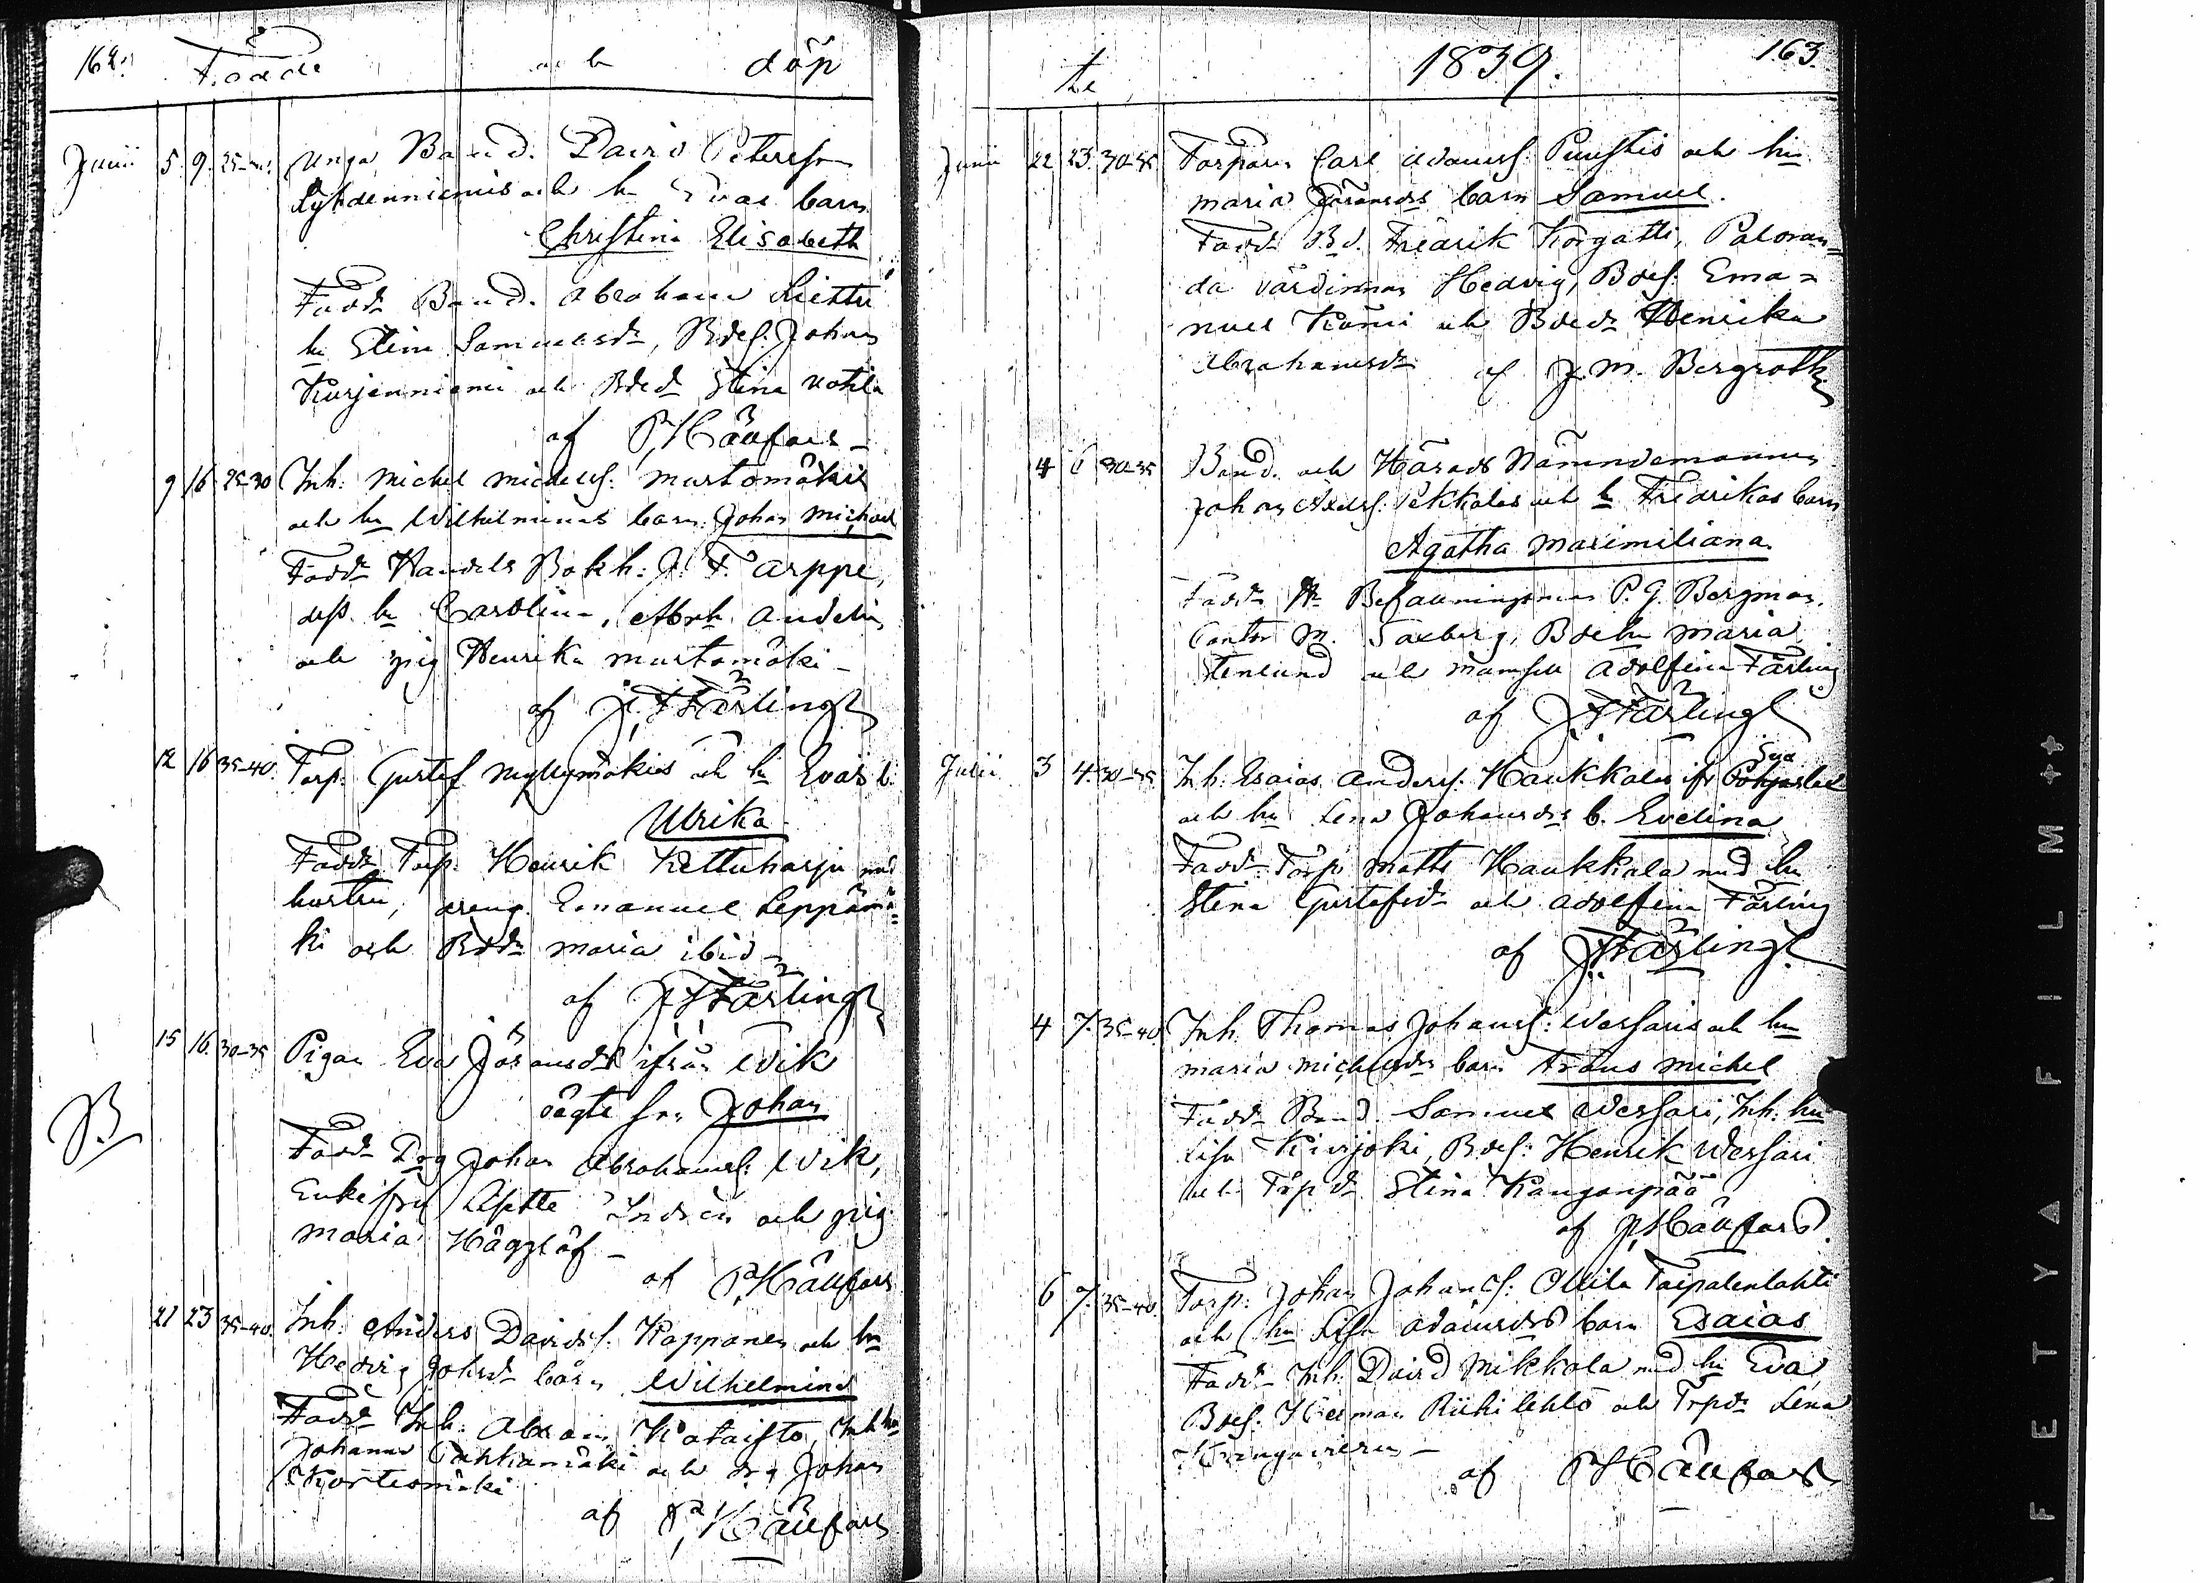 162. Födde och döp
Junii 5. 9. 25-30. Unga Bond. David Petersson
Lyhdenniemis och hu Evas barn
Christina Elisabeth
Fadd. Bond. Abraham Liettu
hu Stina Samuelsdr, Bdes. Johan
Kurjenniemi och Bdedr Stina
af P. Hällfors
9 16 25-30 Inh: Michel Michelss: Mustomäkis
och hu Wilhelminas barn: Johan Michael
Fadd Handels Bokh: J. F. Arppe,
dess hu Carolina, Abrh. Andelin
och pig Henrika Mustomäki
af J. F. Färling
12 16 35-40. Torp. Gustaf Myllymäkis och hu Evas b.
Ulrika
Fadd Torp. Henrik Kettuharju med
hustru, dreng. Emanuel Leppämä-
ki och Bddr Maria ibid
af J. F. Färling
15 16. 30-35 Pigan Eva Jöransdr ifrån Wik
oägta son Johan
B
Fadd Drg Johan Abrahamss: Wik,
Enkefru Lisette Indrén och pig
Maria Hägglöf
af P. Hällfors
21 23 35-40. Inh: Anders Davidss. Kappanen och hu
Hedvig Johsdr barn Wilhelmina
Fadd Inh: Abram Kataisto, Inh hu
Johanna Pahkamäki och drg Johan
Kortesmäki
af P. Hällfors
te 1839. 163.
Junii 22 23. 30-35 Torparen Carl Adamss: Puustis och hu
Maria Jöransdrs barn Samuel.
Fadd Bd. Fredrik Korgatti, Paloran-
da värdinnan Hedvig, Bdes. Ema-
nuel Kämi och Bdedr Henrika
Abrahamsdr af J. M. Bergroth
4 6 30-35 Bond. och Härads Nämndemannen
Johan Axelss. Pekkalas och hu Fredrikas barn
Agatha Maximiliana.
Fadd Hr Befallningsman P. G. Bergman.
Cantor M. Saxberg, Bdehu Maria
Stenlund och Mamsell Adolfina Färling
af J. F. Färling
Julii 3 4. 30-35 Inh. Esaias Anderss. Haukkalas ifr Pohjaslax
och hu Lena Johansdrs b. Evelina
Fadd Torp. Matts Haukkala med hu
Stina Gustafsdr och Adolfina Färling
af J. F. Färling
4 7. 35-40. Inh. Thomas Johanss: Wessaris och hu
Maria Michelsdrs barn Michel
Fadd Bond. Samuel Wessari, Inh: hu
Lisa Kivijoki, Bdes: Henrik Wessari
och Trpdr Stina Kanganpää
af P. Hällfors.
6 7. 35-40. Torp. Johan Johanss: Ollila Taipalenlahti
och hu Lisa Adamsdrs barn Esaias
Fadd Inh. David Mikkola med hu Eva,
Bdes. Herman Riikilehto och Trpdr Lena
Kangasvieru
af P. Hällfors
AFETYAFILM